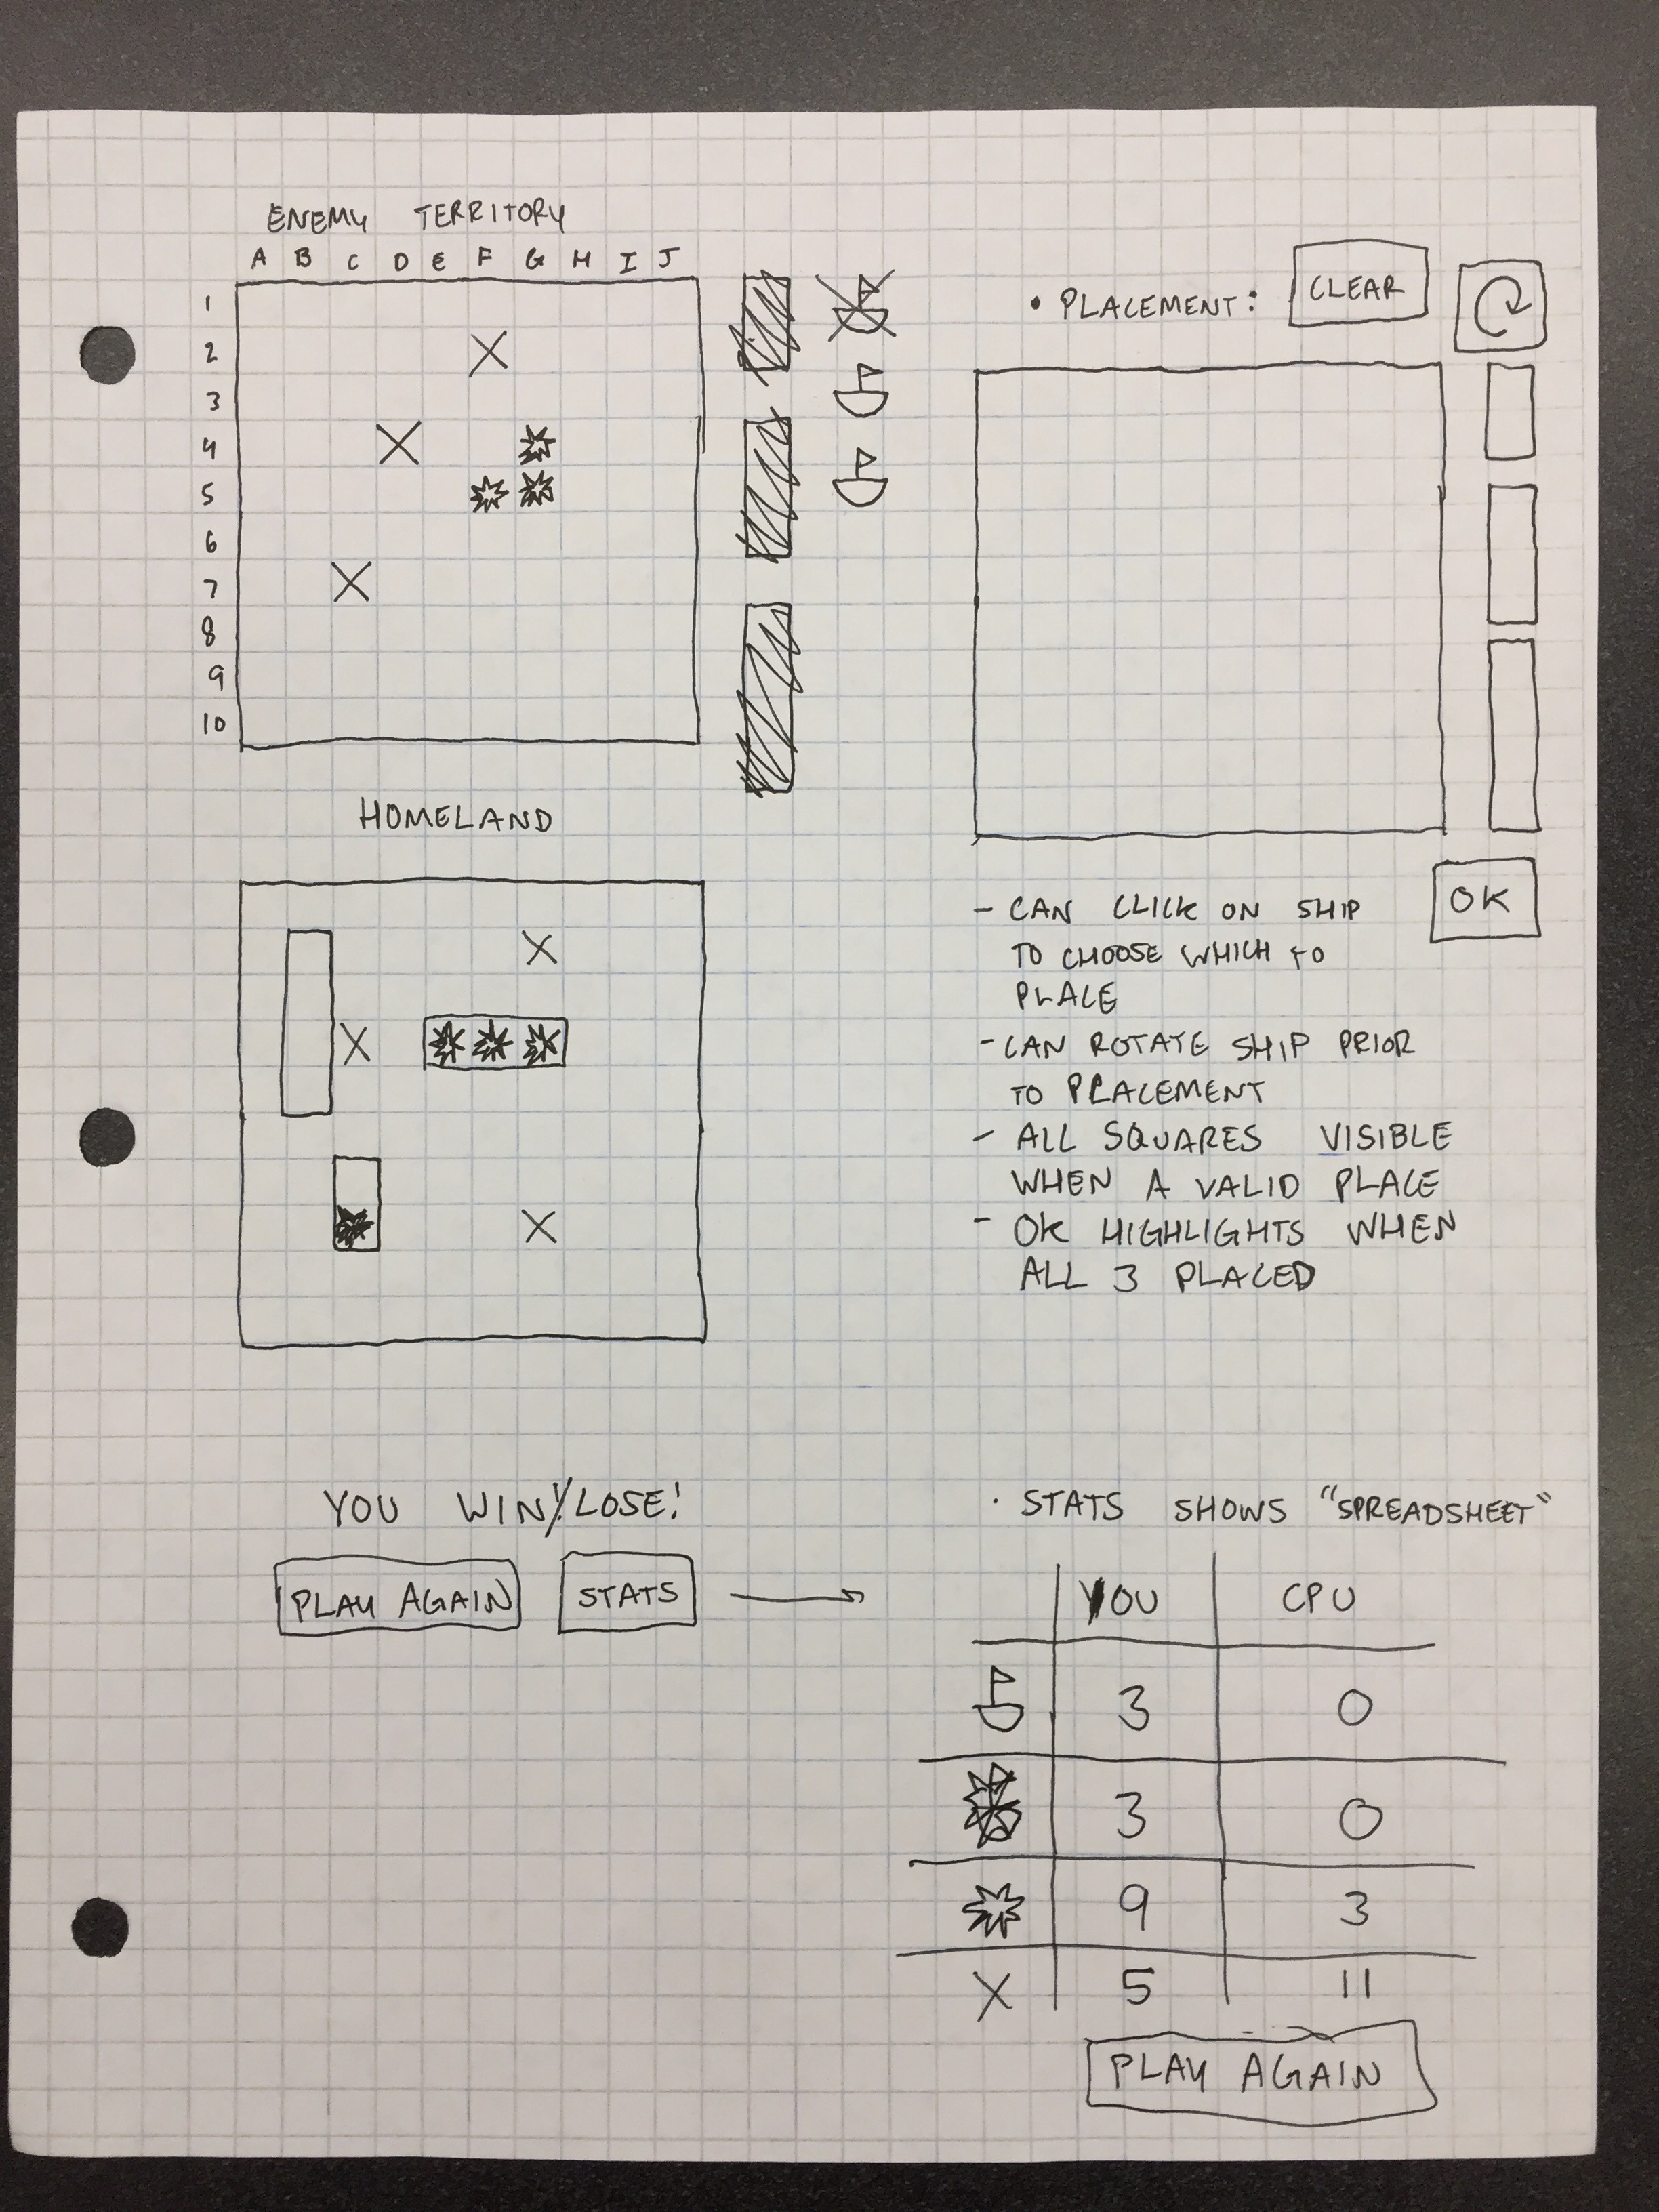 ENEMY TERRITORY
A B C D E F G H I J
1
2
3
4
5
6
7
8
9
10
HOMELAND
• PLACEMENT: CLEAR
OK
- CAN CLICK ON SHIP
TO CHOOSE WHICH TO
PLACE
- CAN ROTATE SHIP PRIOR
TO PLACEMENT
- ALL SQUARES VISIBLE
WHEN A VALID PLACE
- OK HIGHLIGHTS WHEN
ALL 3 PLACED
YOU WIN!/LOSE!
PLAY AGAIN STATS
• STATS SHOWS "SPREADSHEET"
YOU CPU
3 0
3 0
9 3
X 5 11
PLAY AGAIN